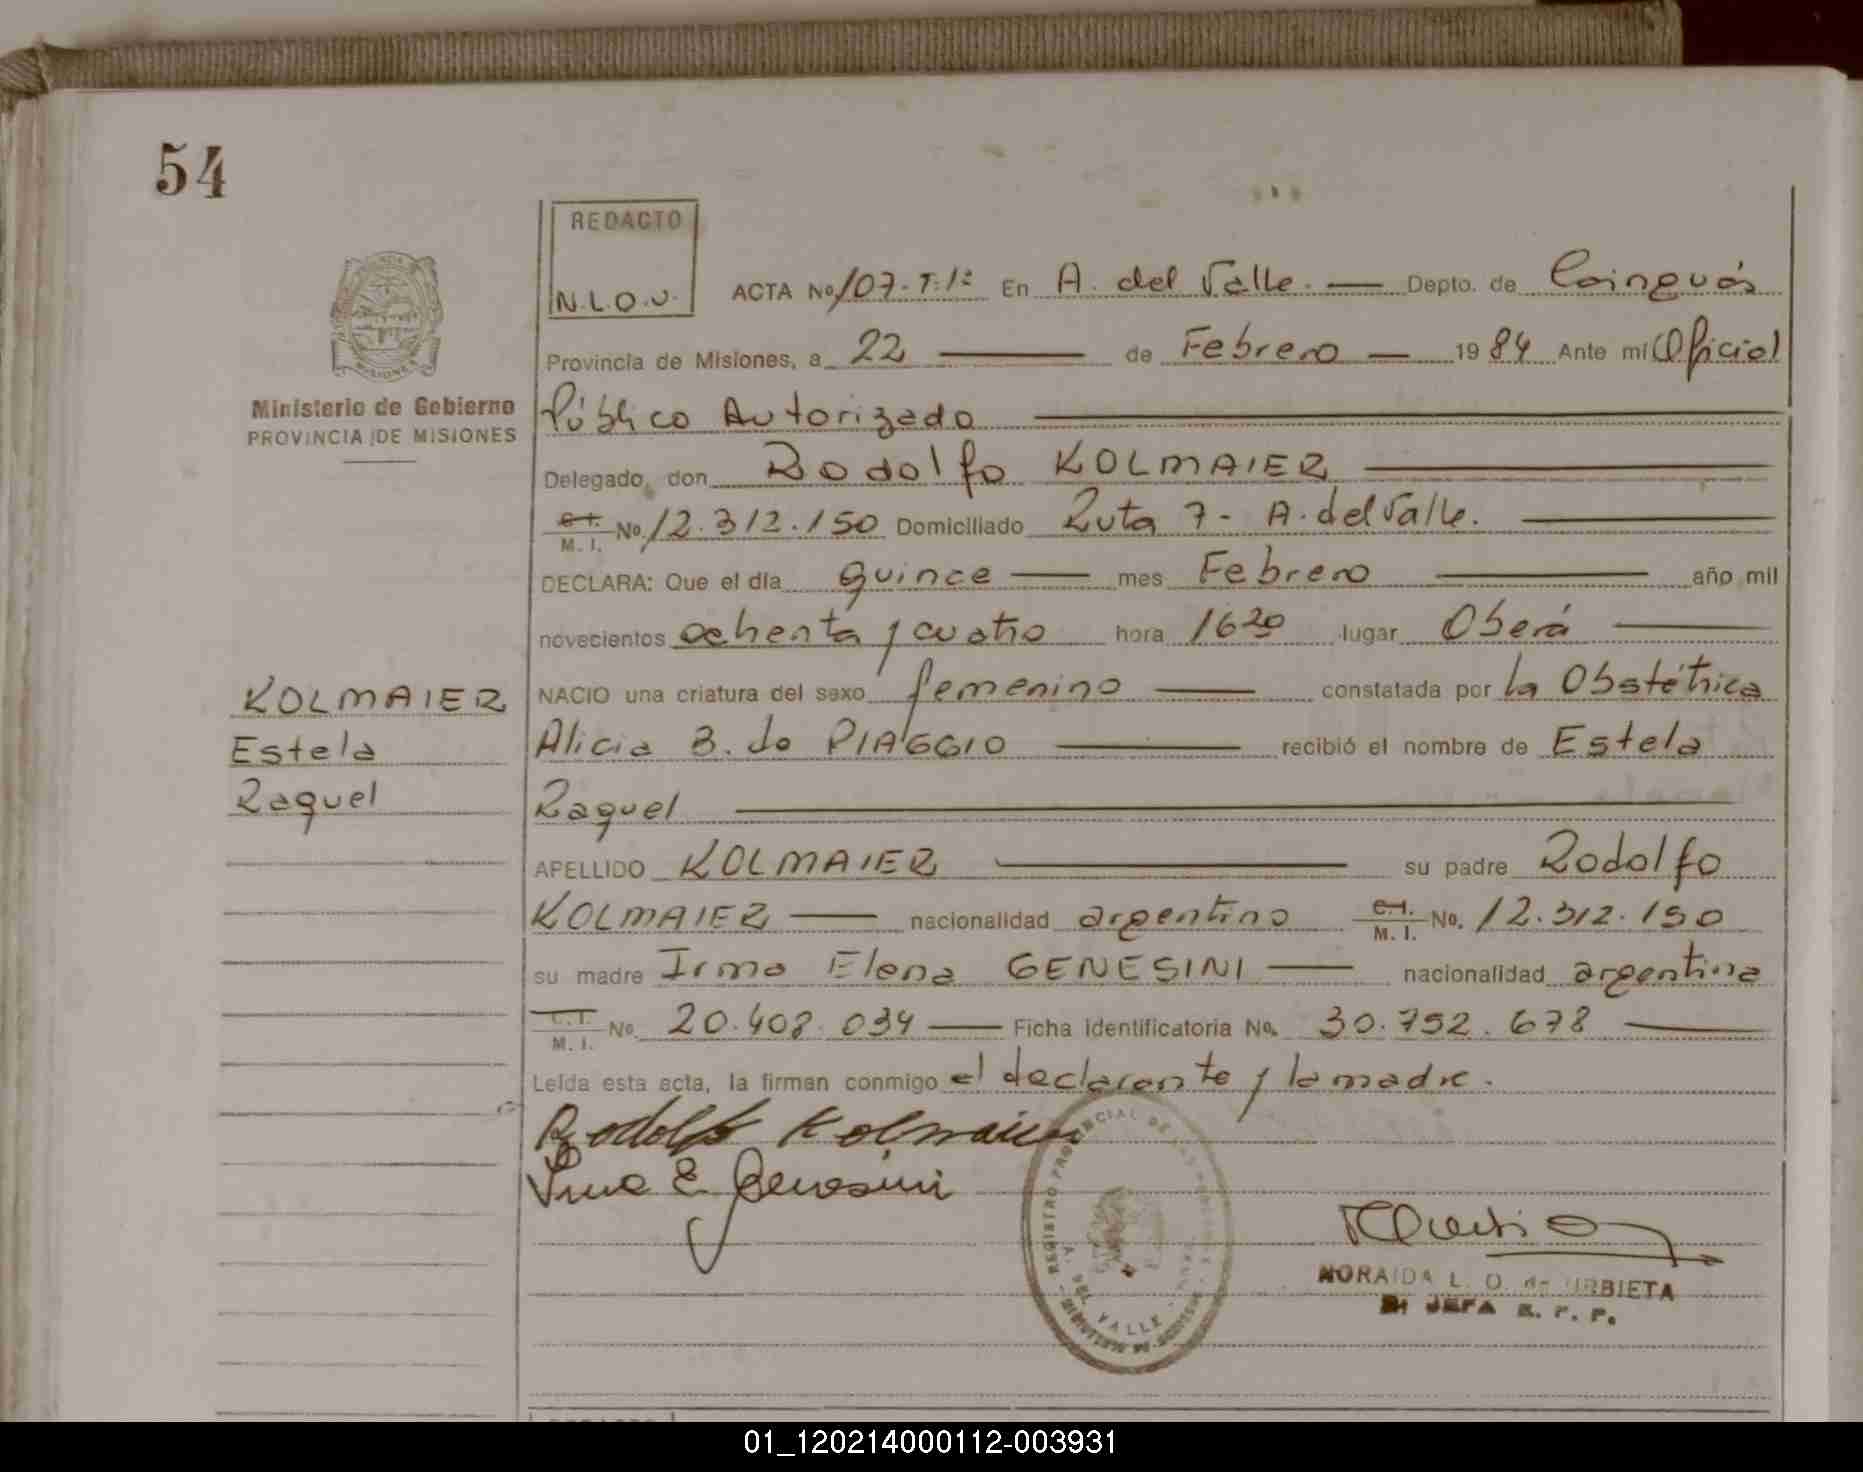 54
REDACTO
N.L.O.U.
ACTA No 107-T:1º En A. del Valle. — Depto. de Cainguás
Provincia de Misiones, a 22 — de Febrero — 1984 Ante mi Oficial
Ministerio de Gobierno
PROVINCIA DE MISIONES
Público Autorizado
Delegado, don Rodolfo KOLMAIER
C.I. M. I. No. 12.312.150 Domiciliado Ruta 7 - A. del Valle.
DECLARA: Que el día quince — mes Febrero — año mil
novecientos ochenta y cuatro hora 16 20 lugar Oberá
KOLMAIER
Estela
Raquel
NACIO una criatura del sexo femenino — constatada por la Obstétrica
Alicia B. de PIAGGIO — recibió el nombre de Estela
Raquel
APELLIDO KOLMAIER — su padre Rodolfo
KOLMAIER — nacionalidad argentino C.I. M. I. No. 12.312.150
su madre Irma Elena GENESINI — nacionalidad argentina
C.I. M. I. No. 20.408.034 — Ficha identificatoria No. 30.752.678
Leída esta acta, la firman conmigo el declarante y la madre.
Rodolfo Kolmaier
Irma E. Genesini
REGISTRO PROVINCIAL DE LAS PERSONAS
A. DEL VALLE
MISIONES
NORAIDA L. O. de URBIETA
JEFA R. P. P.
01_120214000112-003931